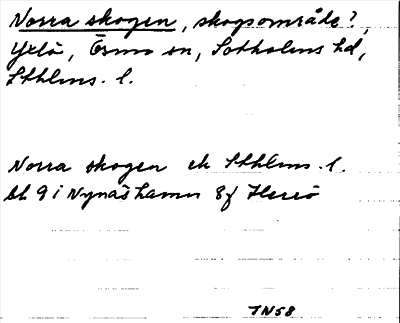 Norra skogen, skogsområde?,
Yxlö, Ösmo sn, Sotholms hd,
Sthlms. l.
Norra skogen ek Sthlms. l.
bl 9 i Nynäshamn 8f Herrö
TN58